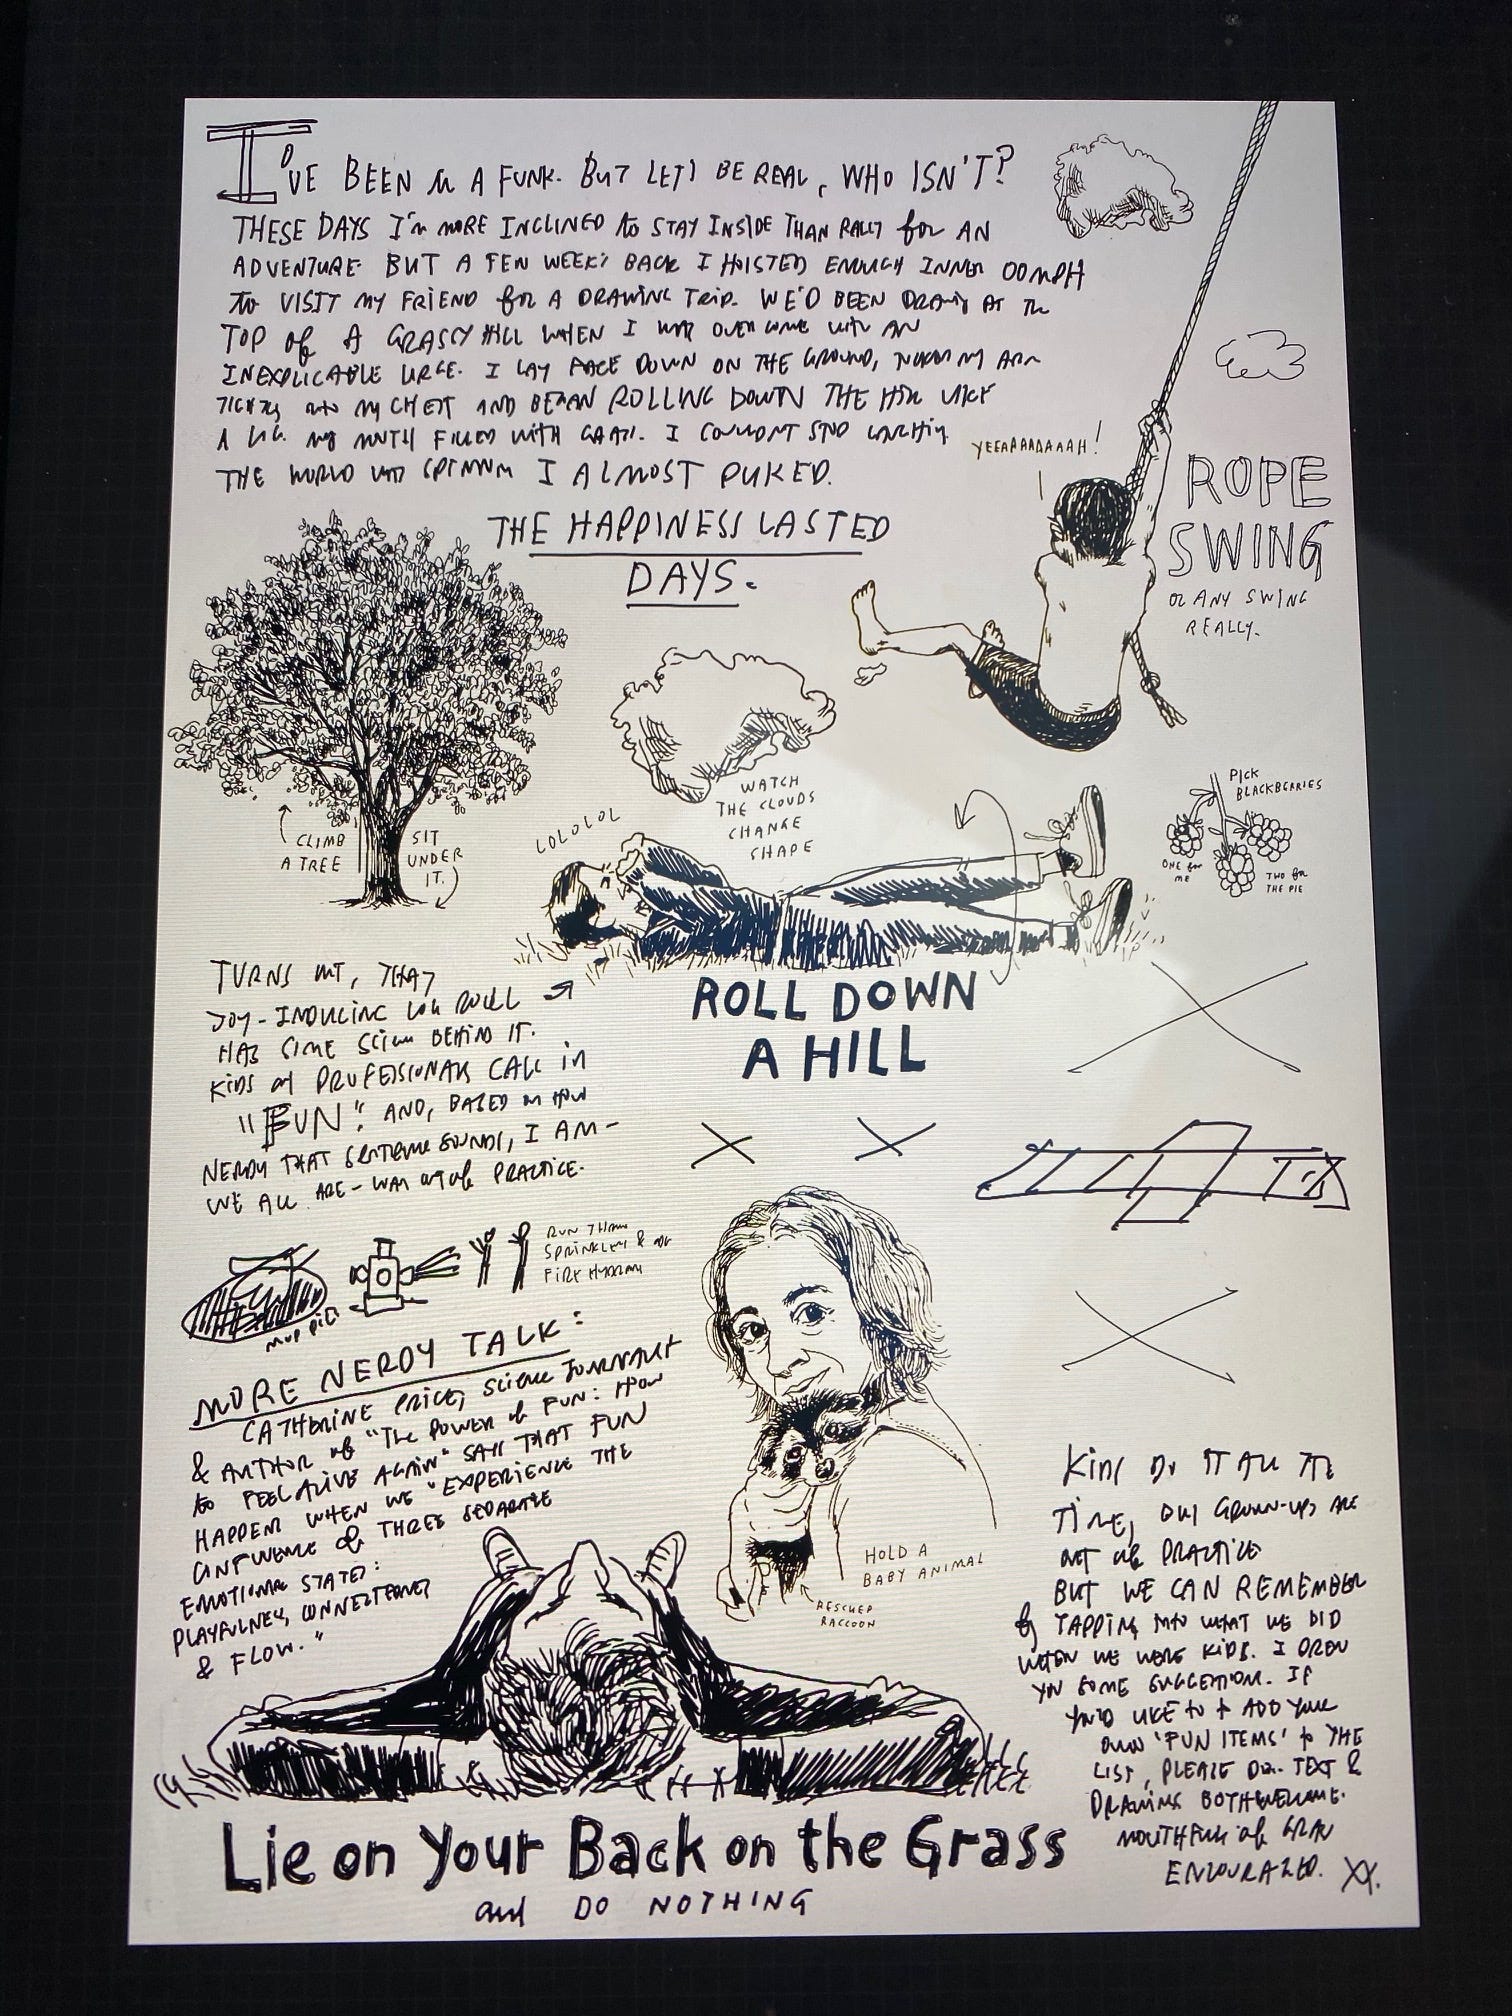 I'VE BEEN IN A FUNK. BUT LET'S BE REAL, WHO ISN'T?
THESE DAYS I'm MORE INCLINED to STAY INSIDE THAN RALLY for AN
ADVENTURE. BUT A FEW WEEKS BACK I HOISTED ENOUGH INNER OOMPH
to VISIT MY FRIEND for A DRAWING TRIP. WE'D BEEN DRAWING AT the
TOP of A GRASSY HILL WHEN I WAS OVERCOME with AN
INEXPLICABLE URGE. I LAY FACE DOWN ON THE GROUND, TUCKED MY ARMS
TIGHTLY into MY CHEST AND BEGAN ROLLING DOWN THE HILL LIKE
A LOG. MY MOUTH FILLED WITH GRASS. I COULDN'T STOP LAUGHING.
THE WORLD WAS SPINNING I ALMOST PUKED.
THE HAPPINESS LASTED
DAYS.
YEEAAAAAAAAH!
ROPE
SWING
or ANY SWING
REALLY.
CLIMB
A TREE
SIT
UNDER
IT.
WATCH
THE CLOUDS
CHANGE
SHAPE
LOLOLOL
PICK
BLACKBERRIES
ONE for
ME
TWO for
THE PIE
ROLL DOWN
A HILL
TURNS OUT, THAT
JOY-INDUCING LOG ROLL
HAS SOME SCIENCE BEHIND IT.
KIDS and PROFESSIONALS CALL IT
"FUN". AND, BASED on HOW
NERDY THAT SENTENCE SOUNDS, I AM -
WE ALL ARE - WAY out of PRACTICE.
RUN THRU
SPRINKLER & or
FIRE HYDRANT
MUD PIE
MORE NERDY TALK:
CATHERINE PRICE, SCIENCE JOURNALIST
& AUTHOR of "The POWER of FUN: HOW
to FEEL ALIVE AGAIN" SAYS THAT FUN
HAPPENS WHEN WE "EXPERIENCE THE
CONFLUENCE of THREE SEPARATE
EMOTIONAL STATES:
PLAYFULNESS, CONNECTEDNESS
& FLOW."
HOLD A
BABY ANIMAL
RESCUED
RACCOON
KIDS DO IT ALL THE
TIME, BUT GROWN-UPS ARE
OUT of PRACTICE
BUT WE CAN REMEMBER
by TAPPING INTO WHAT WE DID
WHEN WE WERE KIDS. I DREW
YOU SOME SUGGESTIONS. IF
YOU'D LIKE to ADD YOUR
OWN 'FUN ITEMS' to THE
LIST, PLEASE DO. TEXT &
DRAWINGS BOTH WELCOME.
MOUTHFULS of GRASS
ENCOURAGED. XX.
Lie on Your Back on the Grass
and DO NOTHING